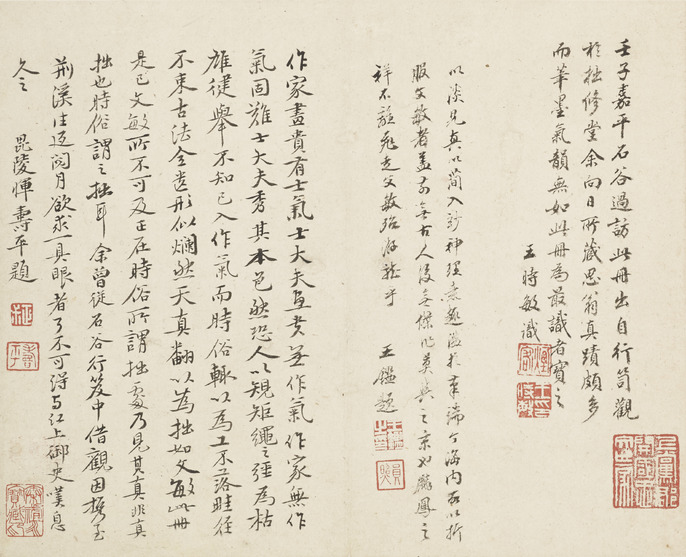 壬子嘉平石谷過訪此冊出自行笥觀
於拙修堂余向日所藏思翁真蹟頗多
而筆墨氣韻無如此冊為最識者寶之
王時敏識
以淡見真以簡入妙神理意趣溢於筆端海內所以折
服文敏者蓋前無古人後無傑作莫與之京如麟鳳之
祥不
王鑑題
作家畫貴有士氣士大夫畫貴無作氣作家無作
氣固難士大夫秀其本色然恐人以規矩繩之強為枯
雄健舉不知已入作氣而時俗輒以為工不落畦徑
不束古法全遺形似爛然天真翻以為拙如文敏此冊
是已文敏所不可及正在時俗所謂拙處乃見其真非真
拙也時俗謂之拙耳余曾從石谷行笈中借觀因攜至
荊溪往返閱月欲求一真眼者了不可得與江上御史嘆息
久之 毘陵惲壽平題